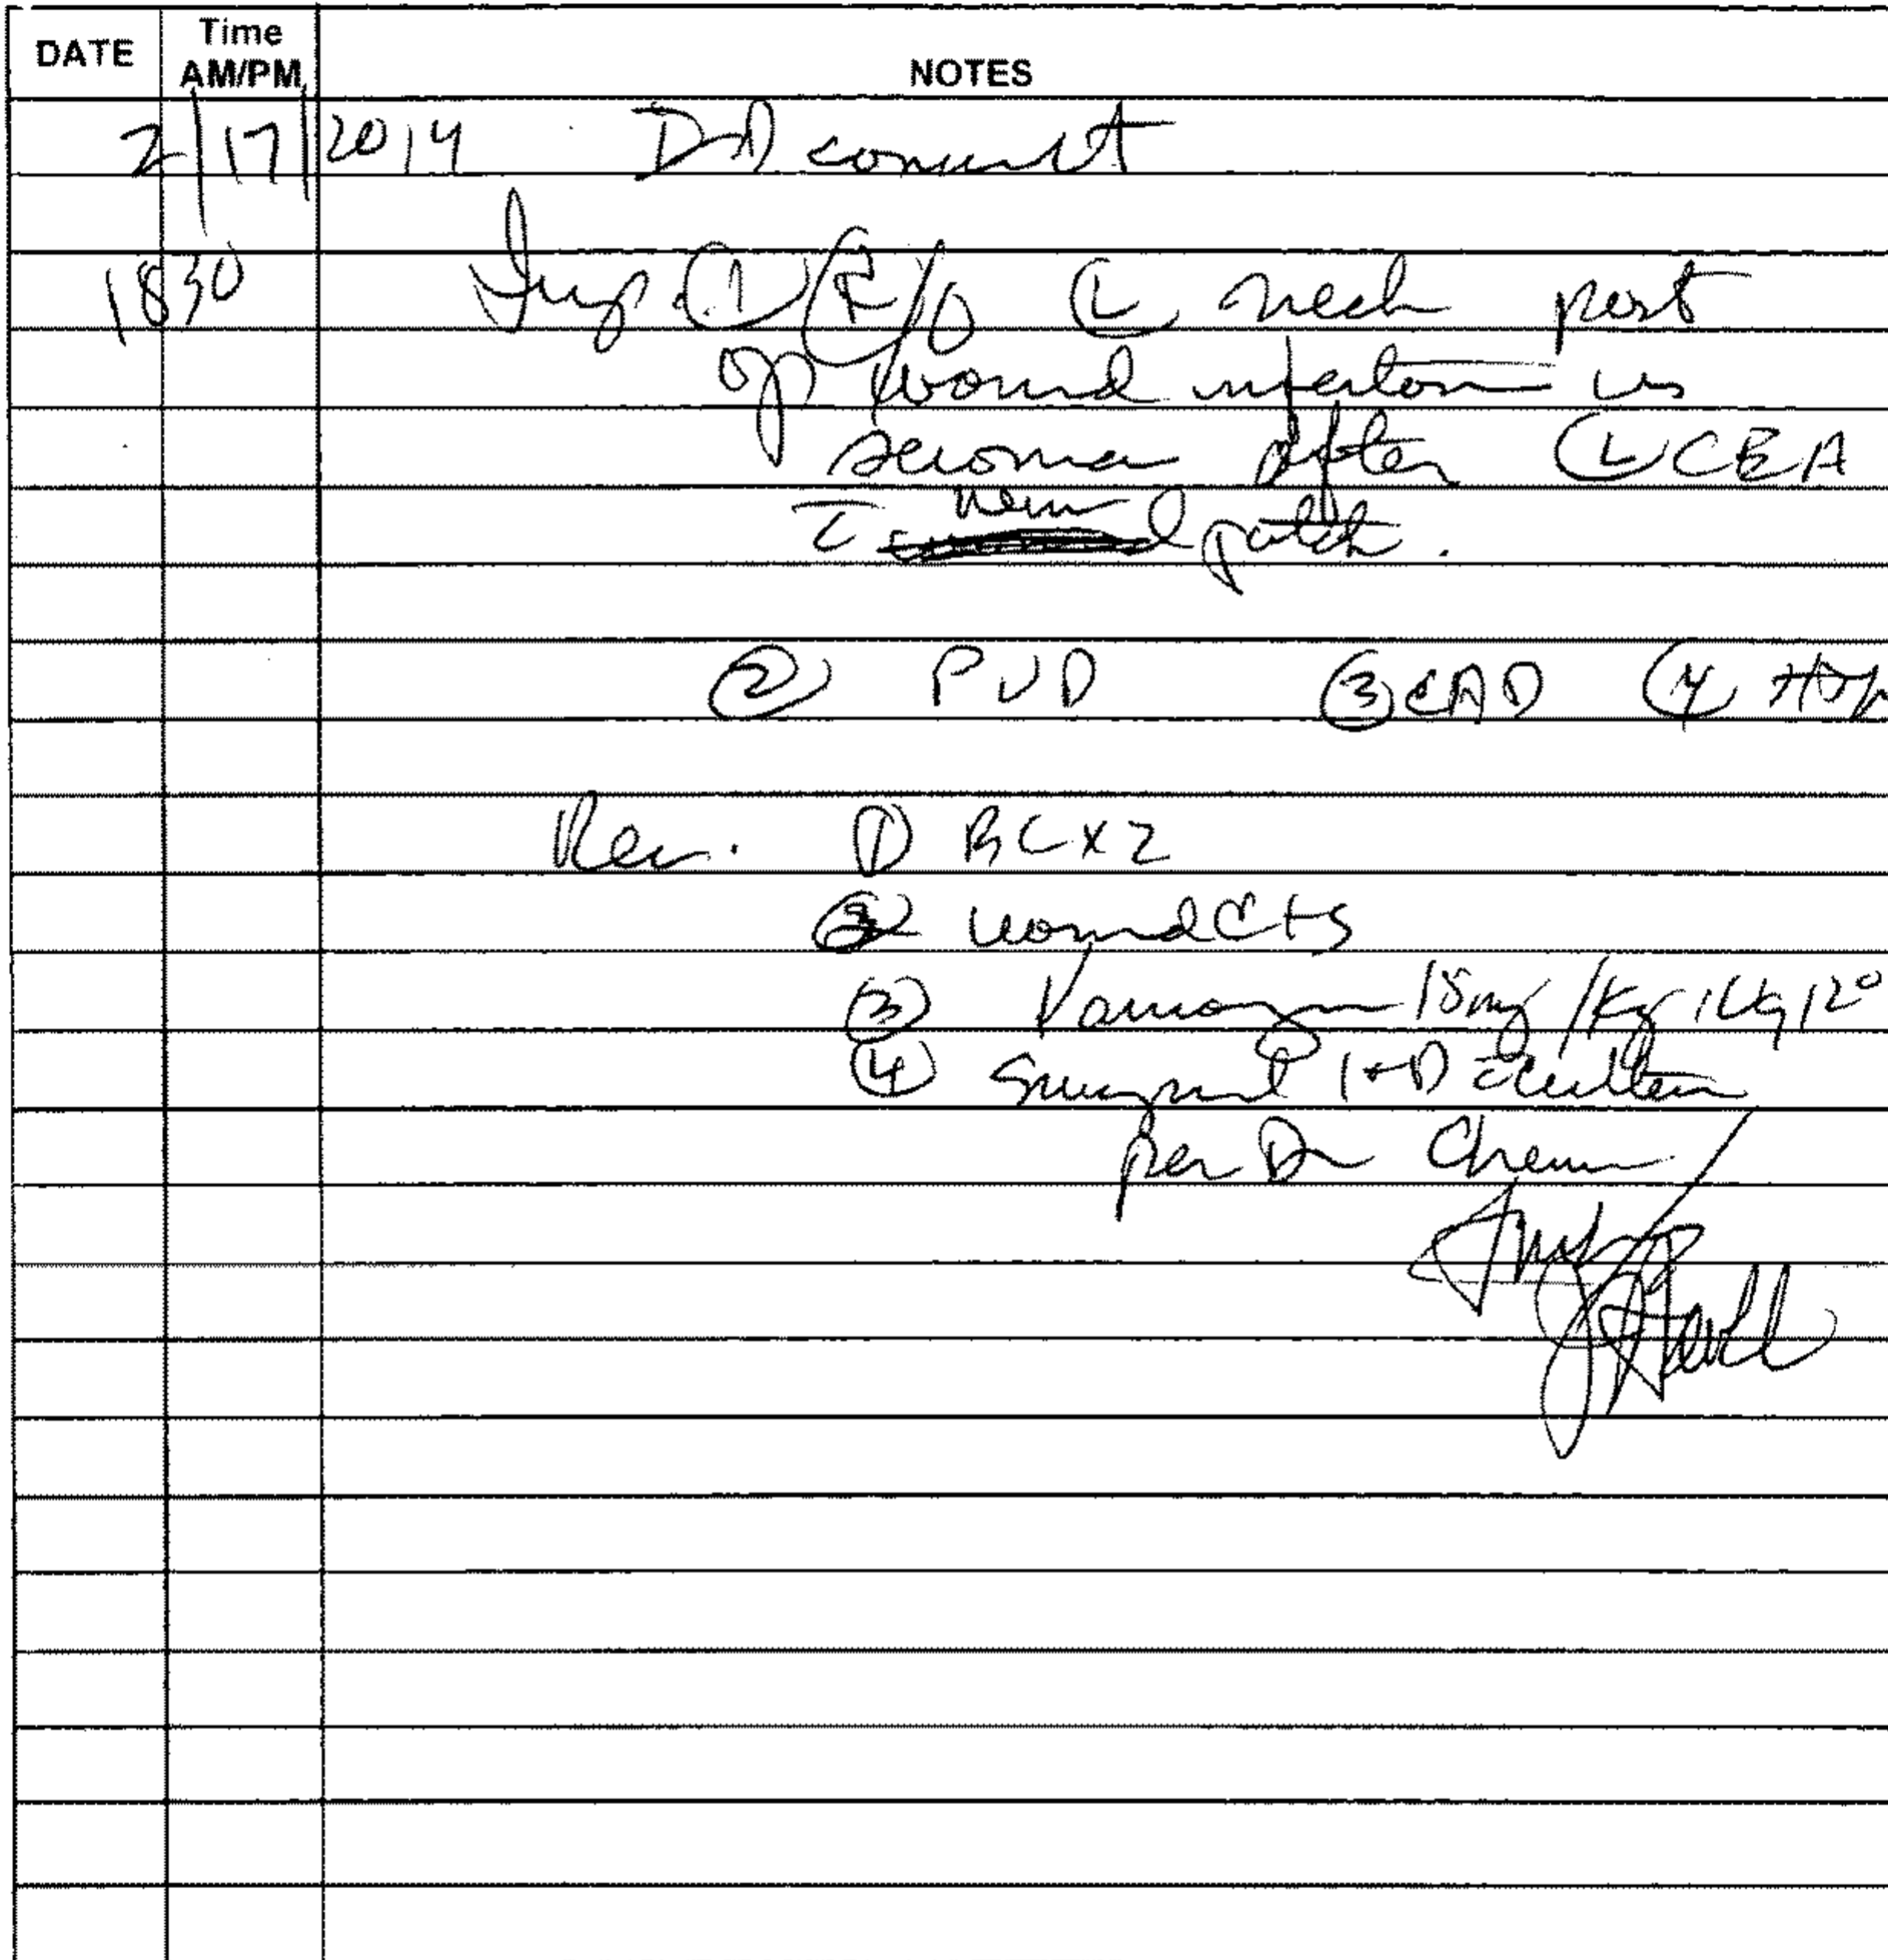 DATE Time AM/PM NOTES
2/17/2014 ID consult
1830 Imp. ① R/O Ⓛ neck post
op wound infection vs
seroma after Ⓛ CEA
c̄ patch.
② PVD ③ CAD ④ HTN
Rec. ① BC x 2
② wound C+S
③ Vancomycin 15mg/kg IV q 12°
④ Surgical I+D c̄ culture
per Dr